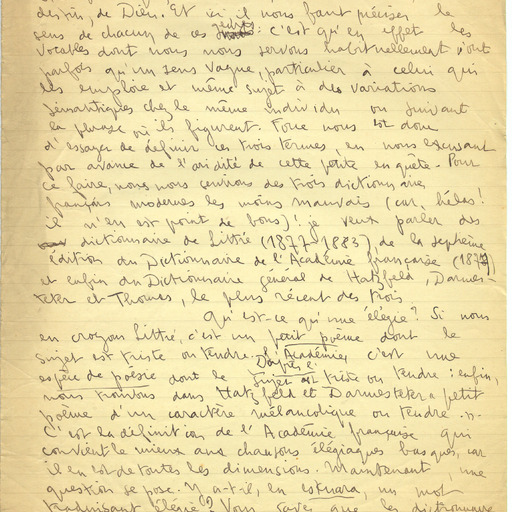 destin, de Dieu. Et ici il nous faut préciser le
sens de chacun de ces : c'est qu'en effet les
vocables dont nous nous servons habituellement n'ont
parfois qu'un sens vague, particulier à celui qui
les emploie et même sujet à des variations
sémantiques chez le même individu ou suivant
la phrase où ils figurent. Force nous est donc
d'essayer de définir ces trois termes, en nous excusant
par avance de l'aridité de cette petite enquête. Pour
ce faire, nous nous servirons des trois dictionnaires
français modernes les moins mauvais (car, hélas!
il n'en est point de bons)! je veux parler des
dictionnaire de Littré (1877-1883), de la septième
édition du Dictionnaire de l'Académie française (1877)
et enfin du Dictionnaire général de Hatzfeld, Darmes-
teter et Thomas, le plus récent des trois
Qu'est-ce qu'une élégie? Si nous
en croyons Littré, c'est un petit poème dont le
sujet est triste ou tendre. D'après l'Académie, c'est une
espèce de poésie dont le sujet est triste ou tendre : enfin,
nous trouvons dans Hatzfeld et Darmesteter "petit
poème d'un caractère mélancolique ou tendre".
C'est la définition de l'Académie française qui
convient le mieux aux chansons élégiaques basques, car
il en est de toutes les dimensions. Maintenant, une
question se pose. Y a-t-il, en eskuara, un mot
traduisant élégie? Vous savez que les dictionnaires